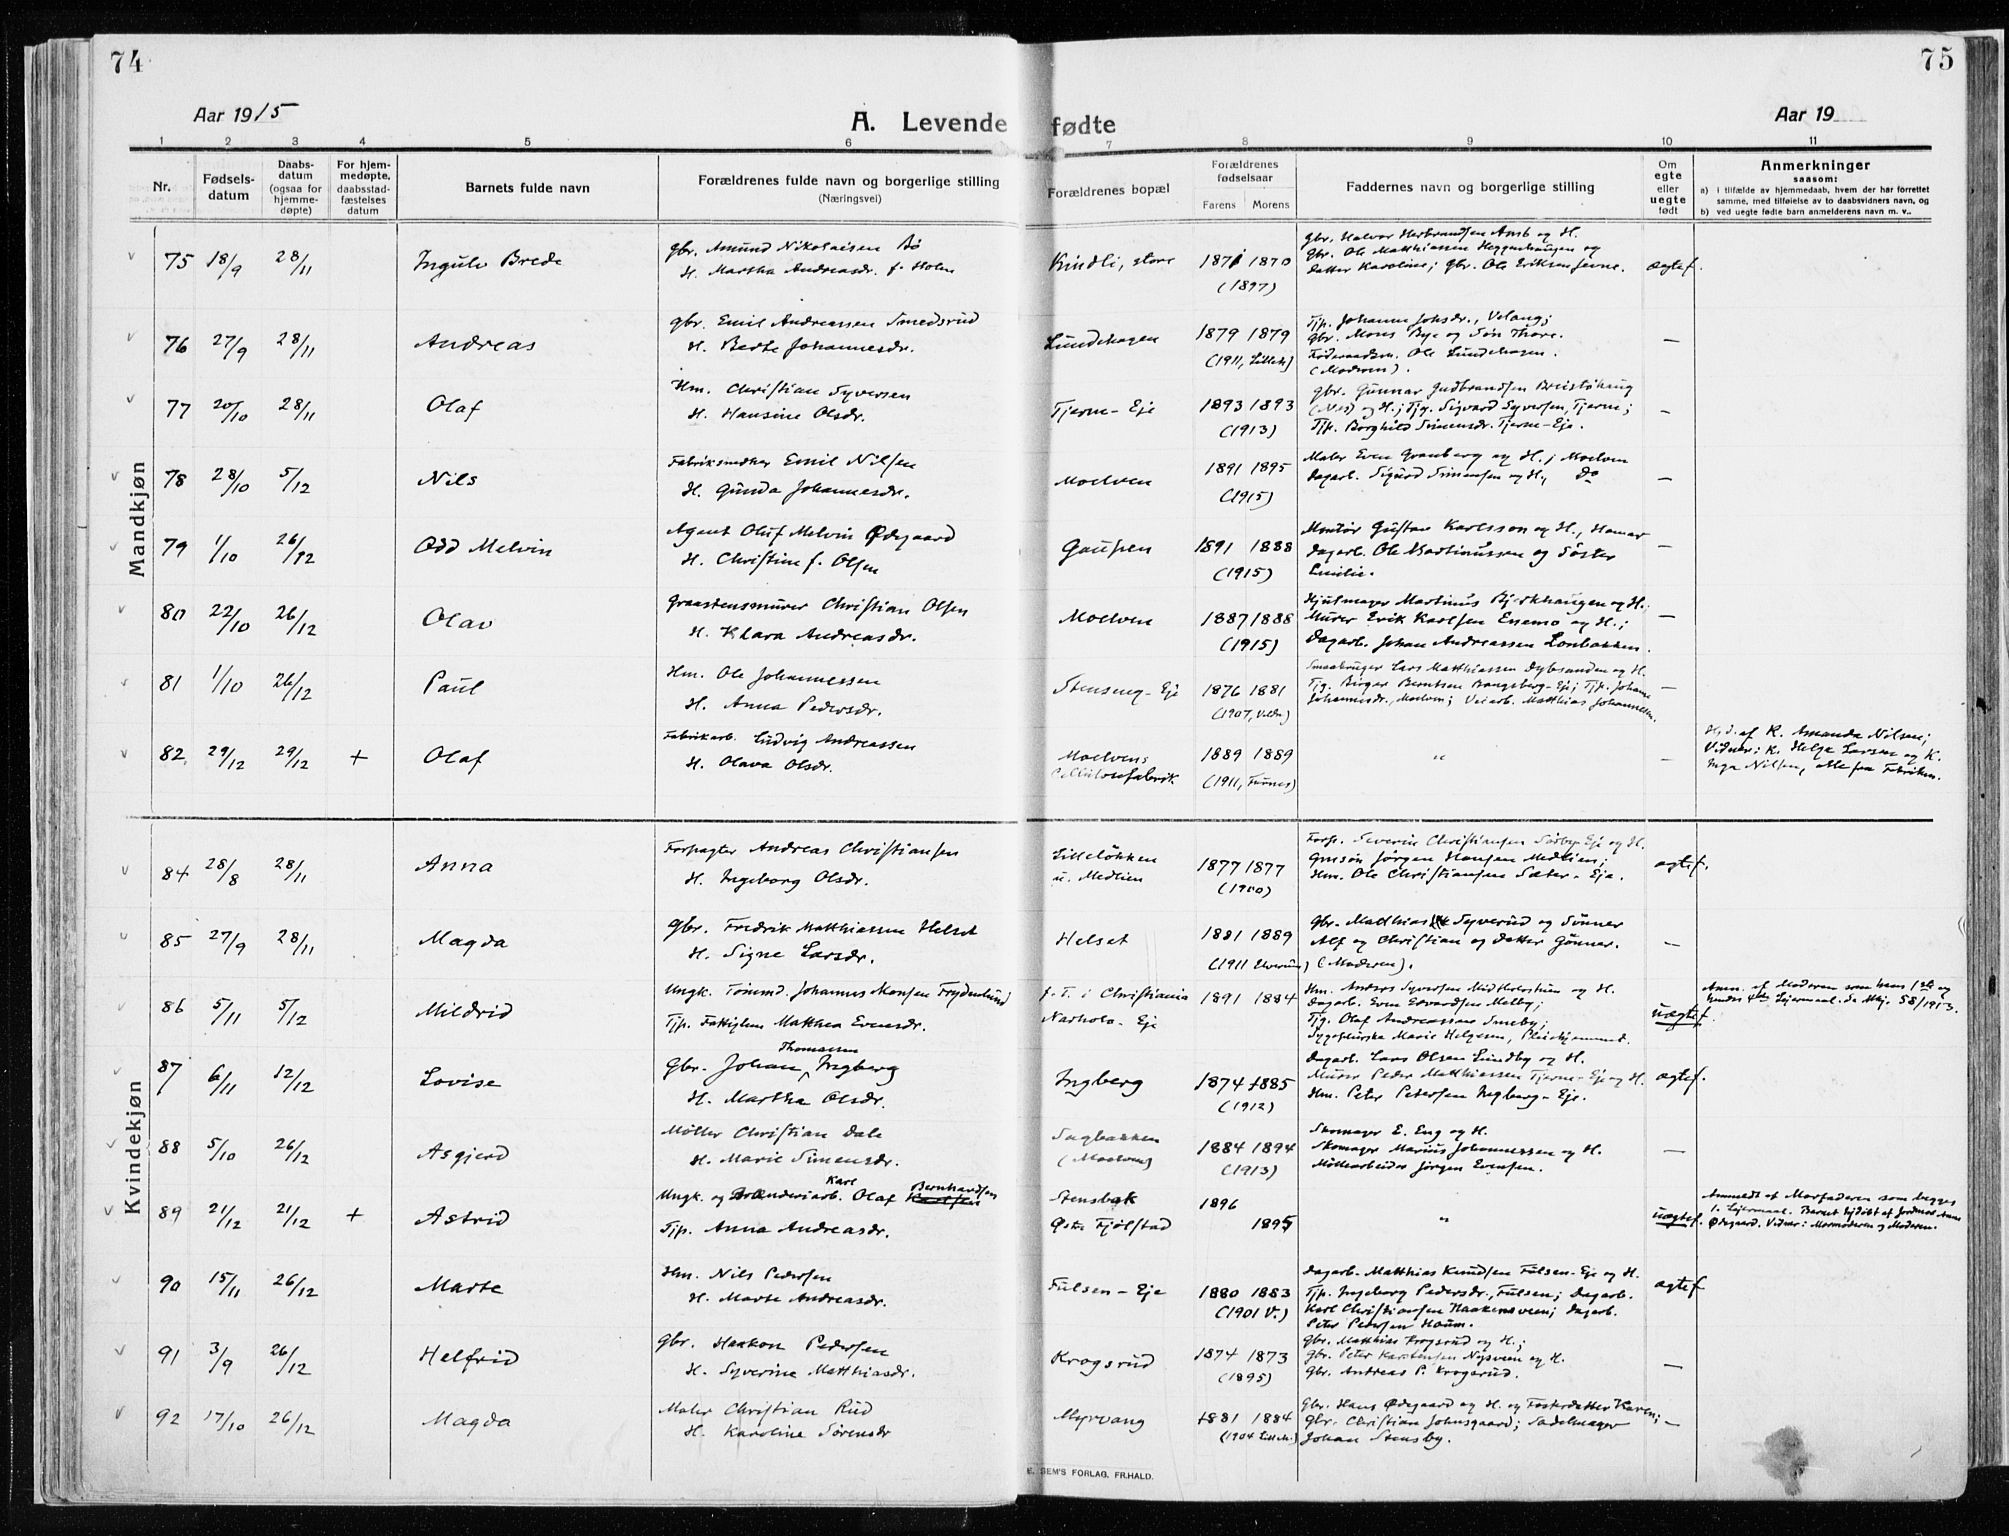 74
75
Aar 1915
A. Levende fødte
Aar 19
1 2 3 4 5 6 7 8 9 10 11
Nr.
Fødsels-
datum
Daabs-
datum
(ogsaa for
hjemme-
døpte)
For hjem-
medøpte,
daabsstad-
fæstelses
datum
Barnets fulde navn
Forældrenes fulde navn og borgerlige stilling
(Næringsvei)
Forældrenes bopæl
Forældrenes
fødselsaar
Farens Morens
Faddernes navn og borgerlige stilling
Om
egte
eller
uegte
født
Anmerkninger
saasom:
a) i tilfælde av hjemmedaab, hvem der har forrettet
samme, med tilføielse av to daabsvidners navn, og
b) ved uegte fødte barn anmelderens navn m. v..
Mandkjøn
75 18/9 28/11 Ingulv Brede
Gbr. Amund Nikolaisen Bö
H. Martha Andreasdr. f. Holm
Kindli, store 1871 1870
(1897)
Gbr. Halvor Herbrandsen Amb og H.
Gbr. Ole Matthiassen Heggenhaugen og
Datter Karoline; Gbr. Ole Eriksen Jevne.
ægtef.
76 27/9 28/11 Andreas
Gbr. Emil Andreassen Smedsrud
H. Berte Johannesdr.
Lundehagen 1879 1879
(1911, Lilleh.)
Tjp. Johanne Johsdr., Velang;
Gbr. Mons Bye og Søn Thore.
Føderaadsm. Ole Lundehagen.
(Moderen).
—
77 20/10 28/11 Olaf
Hm. Christian Syversen
H. Hansine Olsdr.
Tjerne-Eje 1893 1893
(1913)
Gbr. Gunnar Gudbrandsen Breistöhaug
(Nes) og H.; Tjg. Sigvard Syversen, Tjerne;
Tjp. Borghild Simensdr. Tjerne-Eje.
—
78 28/10 5/12 Nils
Emil Nilsen
H. Gunda Johannesdr.
Moelven 1891 1895
(1915)
Maler Even Granberg og H.; Moelven
Dagarb. Sigurd Simensen og H., do
—
79 1/10 26/12 Odd Melvin
Agent Oluf Melvin Ødegaard
H. Christine f. Olsen
Gaupen 1891 1888
(1915)
Montör Gustav Karlsson og H., Hamar
Dagarb. Ole Martinussen og Söster
Emilie.
—
80 22/10 26/12 Olav
Graastensmurer Christian Olsen
H. Klara Andreasdr.
Moelven 1887 1888
(1915)
Hjulmager Martinus Bjerkhaugen og H.;
Murer Erik Karlsen Enemo og H.;
Dagarb. Johan Andreassen Lonbakken.
—
81 1/10 26/12 Paul
Hm. Ole Johannessen
H. Anna Pedersdr.
Stenseng-Eje 1876 1881
(1907, Veldr.)
Smaabruger Lars Matthiassen Dybsanden og H.
Tjg. Birger Berntsen Bangsberg-Eje; Tjp. Johanne
Johannesdr., Moelven; Veiarb. Matthias Johannessen.
—
82 29/12 29/12 + Olaf
Fabrikarb. Ludvig Andreassen
H. Olava Olsdr.
Moelvens
Cellulosefabrik
1889 1889
(1911, Furnes)
"
—
Hj.d. af K. Amanda Nilsen;
Vidner: K. Helga Larsen og K.
Inga Nilsen, alle paa Fabriken.
Kvindekjøn
84 28/8 28/11 Anna
Forpagter Andreas Christiansen
H. Ingeborg Olsdr.
Lillelökken
u. Medlien
1877 1877
(1900)
Forp. Severin Christiansen Sörby-Eje og H.
Gmsön Jörgen Hansen Medlien;
Hm. Ole Christiansen Sæter-Eje.
ægtef.
85 27/9 28/11 Magda
Gbr. Fredrik Matthiassen Helset
H. Signe Larsdr.
Helset 1881 1889
(1911 Elverum)
Gbr. Matthias Syverud og Sönner
Alf og Christian og Datter Gunnar.
(Moderen).
—
86 5/11 5/12 Mildrid
Ungk. Tömmd. Johannes Monsen Frydenlund
Tjp. Fattiglem Matthea Evensdr.
f. T. i Christiania
Narholo-Eje
1891 1884
Hm. Anders Syversen Midtholstuen og H.
Dagarb. Even Edvardsen Melby;
Tjg. Olaf Andreassen Smeby;
Sygepleierske Marie Helgesen, Pleiehjemmet.
uægtef.
Anm. af Moderen som hans 1ste og
hendes 4de Lejermaal. Se Mkj. 58/1913.
87 6/11 12/12 Lovise
Gbr. Johan Thomassen Ingberg
H. Martha Olsdr.
Ingberg 1874 1885
(1912)
Dagarb. Lars Olsen Lundby og H.
Murer Peder Matthiassen Tjerne-Eje og H.
Hm. Peter Petersen Ingberg-Eje.
ægtef.
88 5/10 26/12 Asgjerd
Möller Christian Dale
H. Marie Simensdr.
Sagbakken
(Moelven)
1884 1894
(1913)
Skomager E. Eng og H.
Skomager Marius Johannessen og H.
Möllearbeider Jörgen Evensen.
—
89 21/12 21/12 + Astrid
Ungk. og Brænderiarb. Karl Olaf Karlsen Bernhardsen
Tjp. Anna Andreasdr.
Stensbak
Östre Fjölstad
1896
1895
"
uægtef.
Anmeldt af Morfaderen som begges
1. Lejermaal. Barnet hjdöbt af Jordmor Anne
Ödegaard. Vidner: Mormoderen og Moderen.
90 15/11 26/12 Marte
Hm. Nils Pedersen
H. Marte Andreasdr.
Fulsen-Eje 1880 1883
(1901 V.)
Dagarb. Matthias Knudsen Fulsen-Eje og H.
Tjp. Ingeborg Pedersdr., Fulsen; Dagarb.
Karl Christiansen Haakensveen; Dagarb.
Peter Pedersen Haum.
ægtef
91 3/9 26/12 Helfrid
Gbr. Haakon Pedersen
H. Syverine Matthiasdr.
Krogsrud 1874 1873
(1895)
Gbr. Matthias Krogsrud og H.;
Gbr. Peter Karstensen Nysveen og H.
Gbr. Andreas P. Krogsrud.
—
92 17/10 26/12 Magda
Maler Christian Rud
H. Karoline Sörensdr
Myrvang 1881 1884
(1904 Lilleh.)
Gbr. Hans Ødegaard og H. og Fosterdatter Karen;
Gbr. Christian Johnsgaard; Sadelmager
Johan Stensby.
—
E. SEM'S FORLAG, FR.HALD.